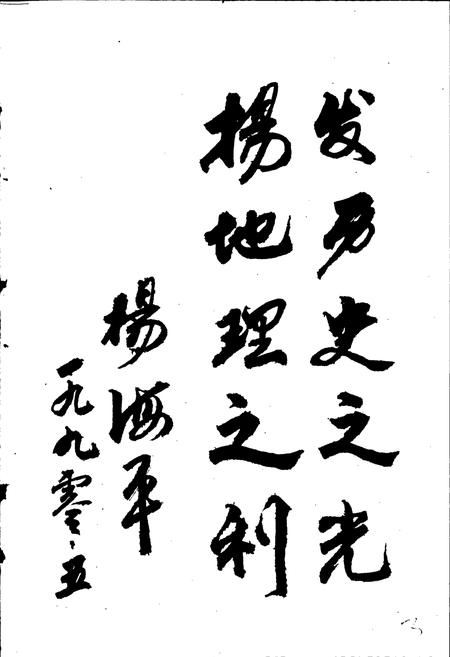 发历史之光
揚地理之利
楊海平
一九九零、五